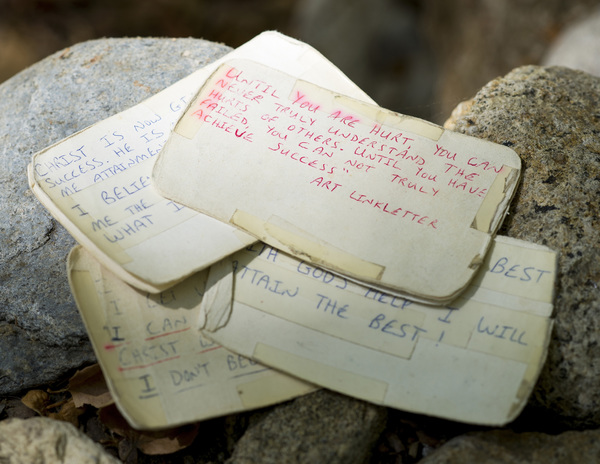 UNTIL YOU ARE HURT, YOU CAN
NEVER TRULY UNDERSTAND THE
HURTS OF OTHERS. UNTIL YOU HAVE
FAILED, YOU CAN NOT TRULY
ACHIEVE SUCCESS"
ART LINKLETTER
CHRIST IS NOW
SUCCESS. HE IS
ME ATTAINMENT
I BELIE
ME THE
WHAT I
GOD'S HELP I WILL
BEST
ATTAIN THE BEST!
I
I
I CAN
CHRIST IS
I DON'T BEL